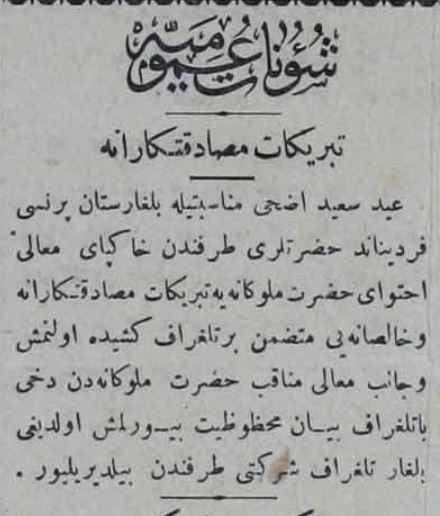 شئونات عموميه
تبريكات مصادقتكارانه
عيد سعيد اضحى مناسبتيله بلغارستان پرنسى
فرديناند حضرتلرى طرفندن خاكپاى معالى
احتواى حضرت ملوكانه‌يه تبريكات مصادقتكارانه
و خالصانه‌يى متضمن بر تلغراف كشيده اولنمش
و جانب معالى مناقب حضرت ملوكانه‌دن دخى
باتلغراف بيــان محظوظيت بيــورلمش اولديغى
بلغار تلغراف شركتى طرفندن بيلديريليور .